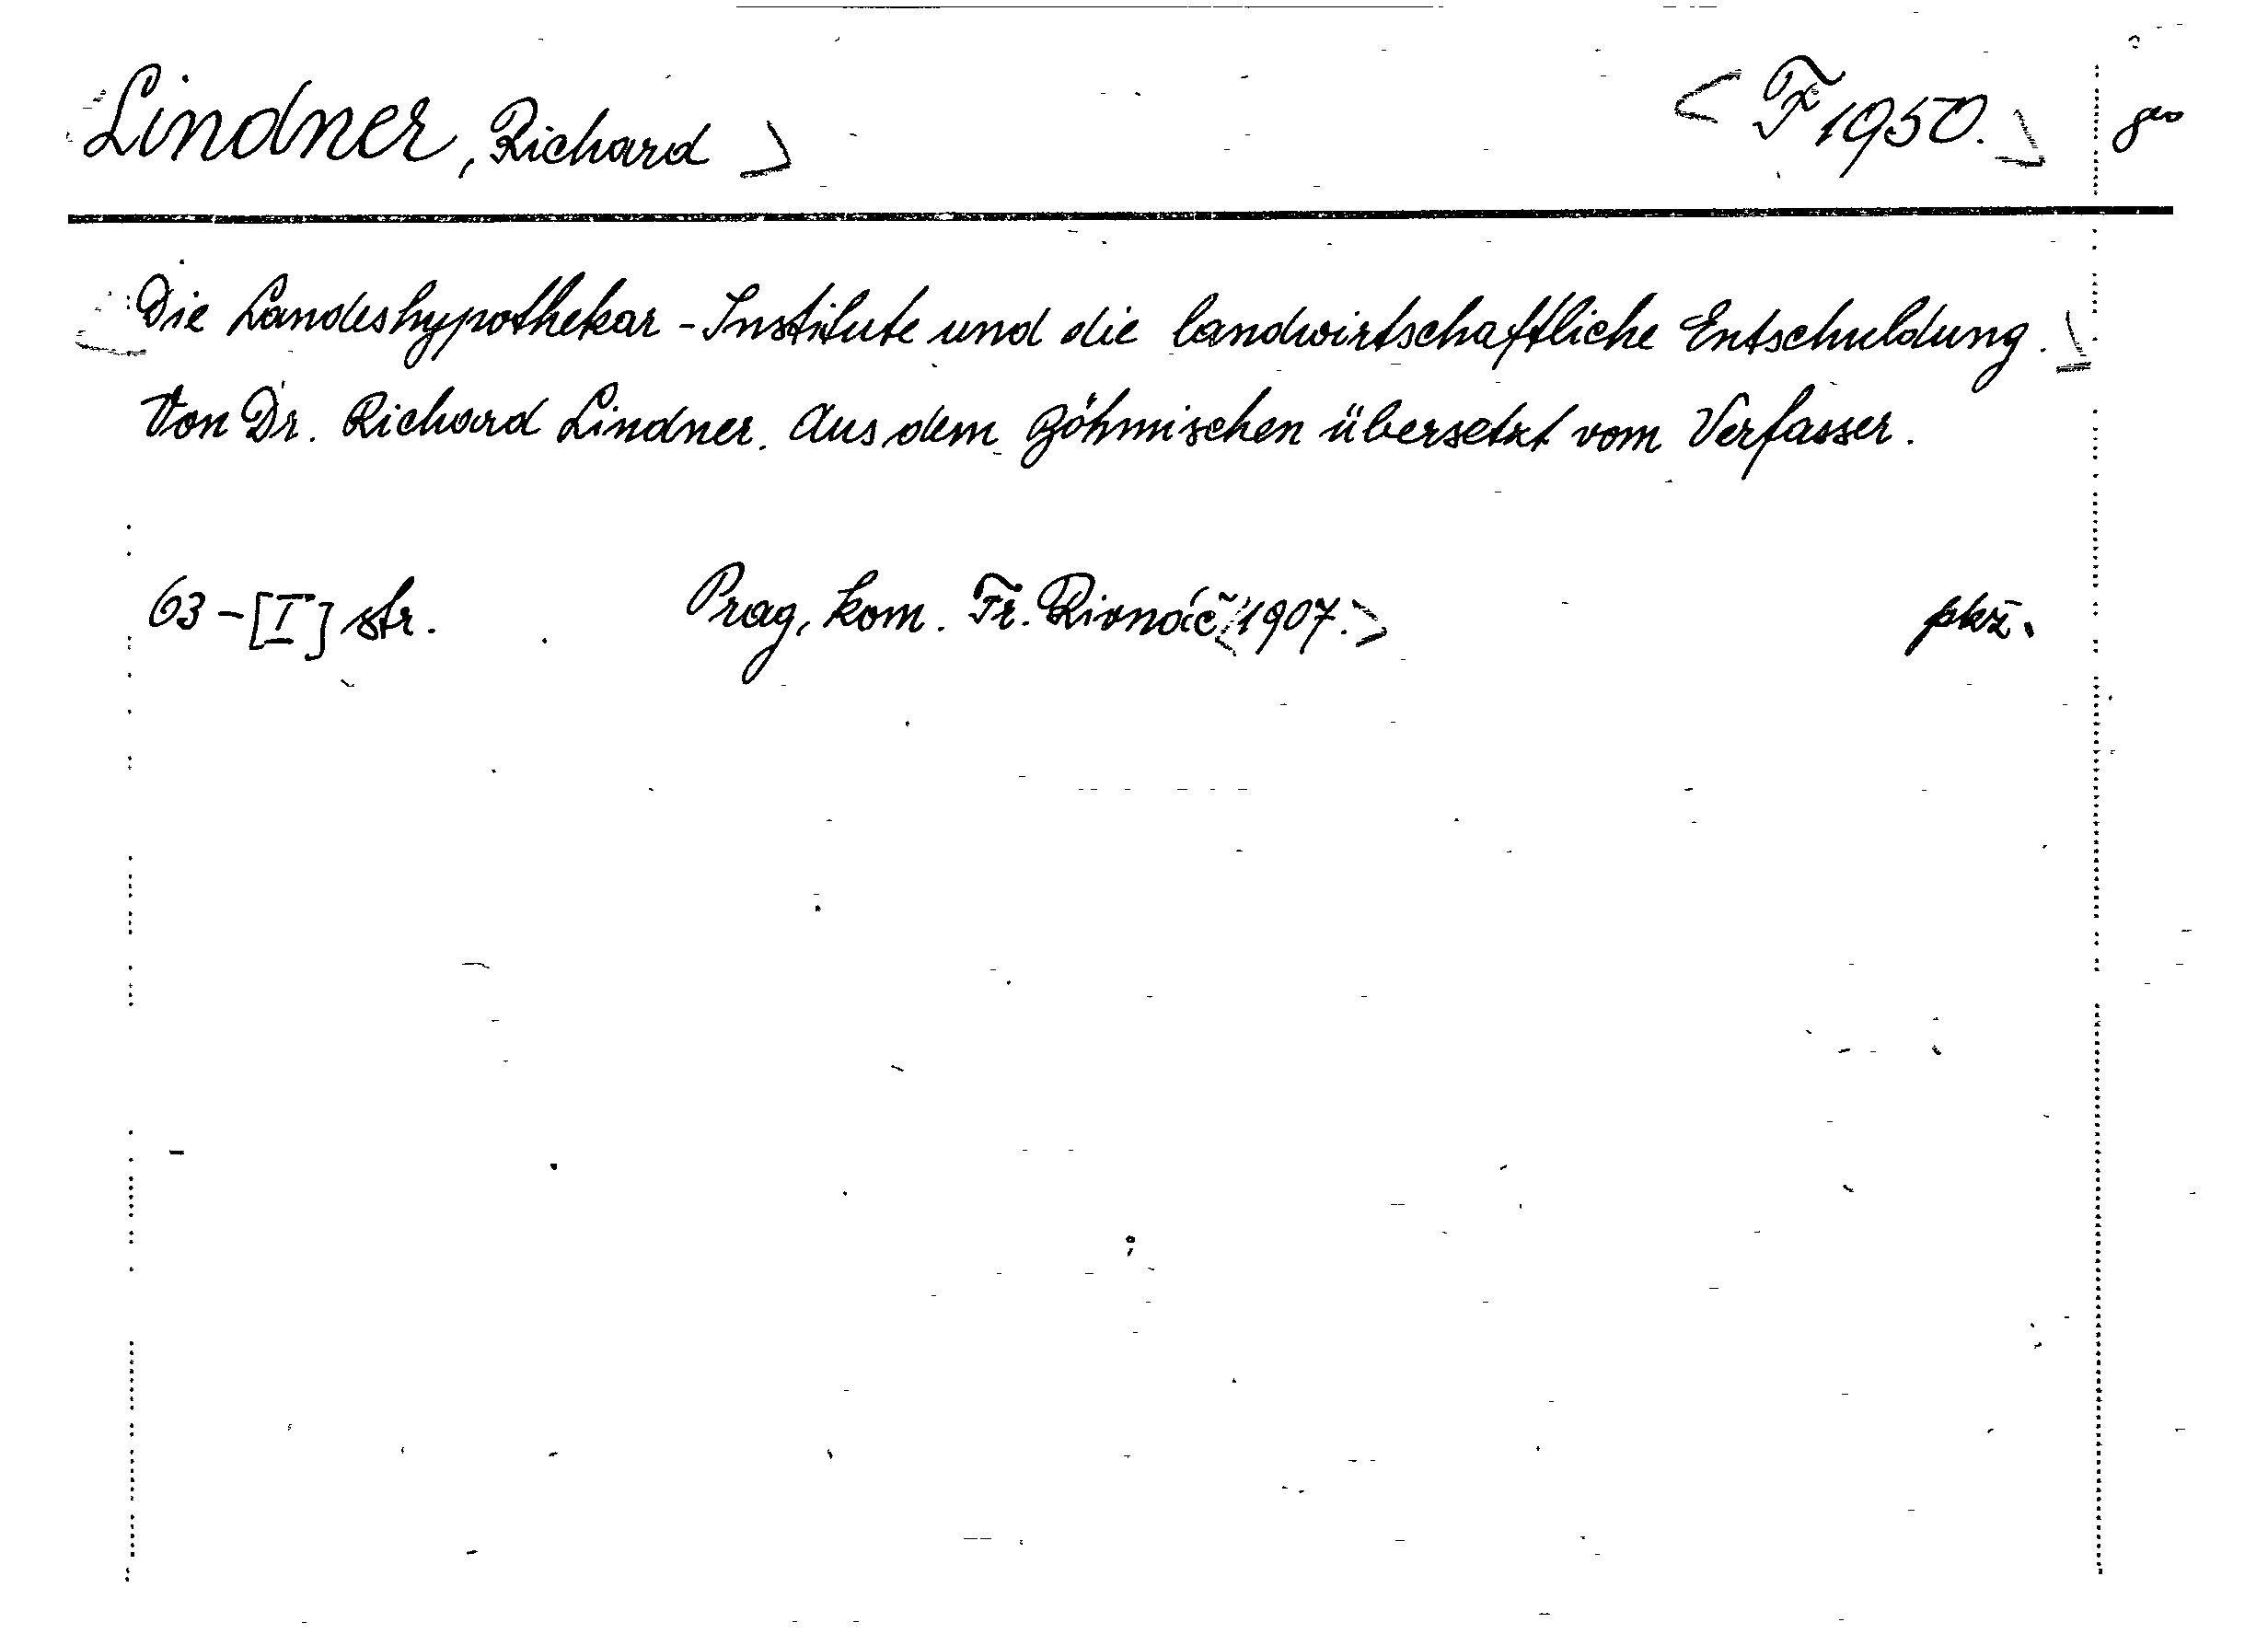 Lindner, Richard > < F 1950. > geo
Die Landeshypothekar-Institute und die landwirtschaftliche Entschuldung.
Von Dr. Richard Lindner. Aus dem Böhmischen übersetzt vom Verfasser.
63-[I] str. Prag, kom. Fr. Rivnáč <1907.>